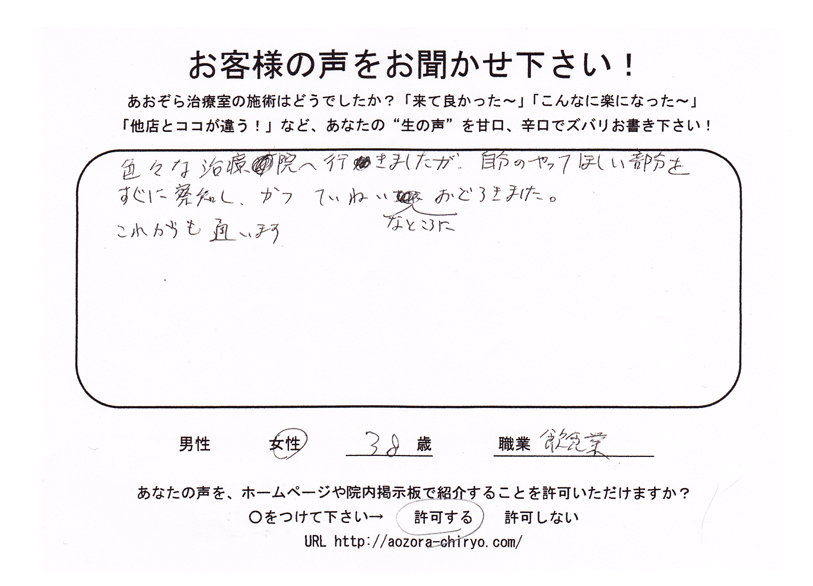 お客様の声をお聞かせ下さい！
あおぞら治療室の施術はどうでしたか？「来て良かった～」「こんなに楽になった～」
「他店とココが違う！」など、あなたの“生の声”を甘口、辛口でズバリお書き下さい！
色々な治療院へ行きましたが、自分のやってほしい部分を
すぐに察知し、かつ ていねい おどろきました。
なところに
これからも 通います
男性 女性 38 歳 職業 飲食業
あなたの声を、ホームページや院内掲示板で紹介することを許可いただけますか？
〇をつけて下さい→ 許可する 許可しない
URL http://aozora-chiryo.com/